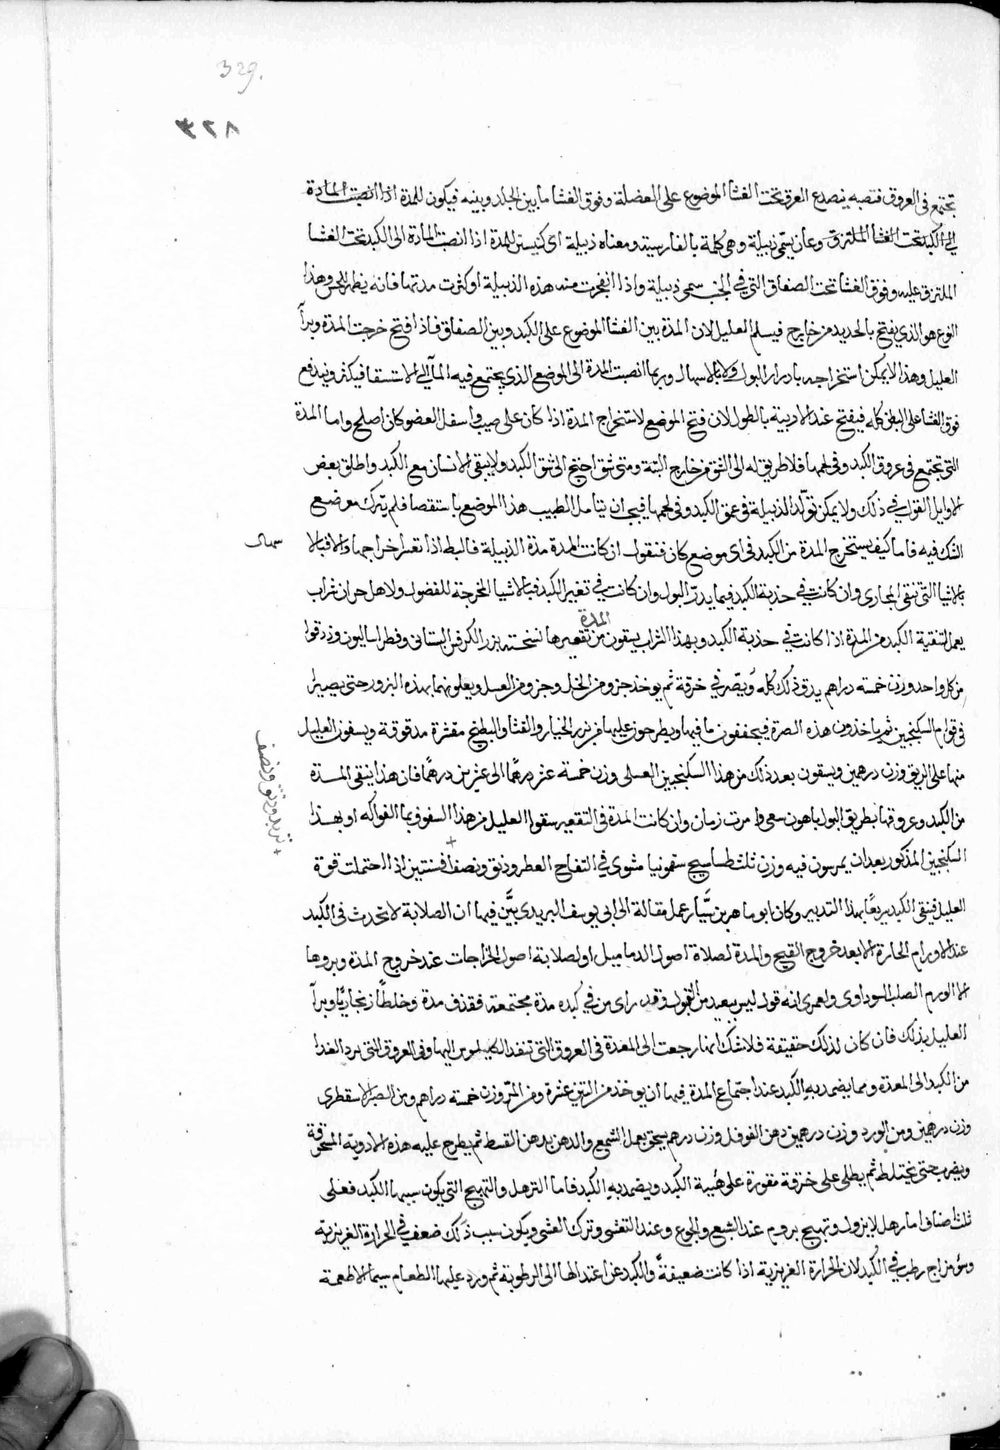 329.
٣٢٨
تجتمع فى العروق فتصبه ينصدع العرق تحت الغشا الموضوع على العضلة وفوق الغشا ما بين الجلد وبينه فيكون للمدة اذا انصبت المادة
الى الكبد تحت الغشا الملتزق وعان يسمى دبيلة وهى كلمة بالفارسية ومعناه ذبيلة اى كيس للمدة اذا انصبت المادة الى الكبد تحت الغشا
الملتزق عليه وفوق الغشا تحت الصفاق التى فى الجنب سمى دبيلة واذا انفجرت منه هذه الذبيلة اوكثرت مدتها فانه يظهر للحس وهذا
النوع هو الذى يفتح بالحديد من خارج فيسلم العليل لان المدة بين الغشا الموضوع على الكبد وبين الصفاق فاذا فتح خرجت المدة وبرأ
العليل وهذا لا يمكن استخراجه بادرار البول ولا بالاسهال وربما انصبت المدة الى الموضع الذى يجتمع فيه الماء فى الاستسقا فيكثر ويندفع
فوق الغشا على البطن كله فيفتح عند الاربية بالطول لان فتح الموضع لاستخراج المدة اذا كان على صيب واسفل العضو كان اصلح واما المدة
التى تجتمع فى عروق الكبد وفى لحمها فلا طريق له الى الشق من خارج البتة ومتى شق احتيج الى شق الكبد ولا يبقى الانسان مع الكبد واطلق بعض
الاوايل القول فى ذلك ولا يمكن تولد الذبيلة فى عمق الكبد وفى لحمها فيجب ان يتامل الطبيب هذا الموضع باستقصا فلم يترك موضع
الشك فيه فاما كيف يستخرج المدة من الكبد فى اى موضع كان فنقول ان كانت المدة مدة الذبيلة فالبط اذا تعسر اخراجها والا فبالا
سهال
بالاشيا التى تنقى المجارى وان كانت فى حدبة الكبد فبما يدر البول وان كانت فى تقعير الكبد فبالاشيا المخرجة للفضول ولاهل حران شراب
يعمل لتنقية الكبد من المدة اذا كانت فى حدبة الكبد وبهذا الشراب يسقون من تقعيرها نسخته بزر الكرفس البستانى وفطراساليون وذوقوا
المدة
من كل واحد وزن خمسة دراهم يدق ذلك كله ويصر فى خرقة ثم يوخذ جزو من الخل وجزو من العسل ويعلونهما بهذه البزور حتى يصير
فى قوام السكنجبين ثم ياخذون هذه الصرة فيجففون ما فيها ويطرحون عليها من بزر الخيار والقثا والبطيخ مقشرة مدقوقة ويسقون العليل
منها على الريق وزن درهمين ويسقون بعد ذلك من هذا السكنجبين العسلى وزن خمسة عشر درهما الى عشرين درهما فان هذا ينقى المدة
من الكبد وعروقها بطريق البول باهون سعى وامرت زمان وان كانت المدة فى التقعير سقوا العليل من هذا السفوف بما الفواكه او بهذا
السكنجبين المذكور بعد ان يمرسون فيه وزن ثلث طساسيج سقمونيا مشوى فى التفاح العطر ودنق ونصف افسنتين اذا احتملت قوة
+ تربد ودنق ونصف
العليل فينقى الكبد سريعا بهذا التدبير وكان ابو ماهر بن سيار عمل مقالة الى ابى يوسف البريدى بين فيها ان الصلابة لا تحدث فى الكبد
عند الاورام الحارة الا بعد خروج القيح والمدة لصلابة اصول الدماميل او لصلابة اصول الخراجات عند خروج المدة وبروها
الا الورم الصلب السوداوى ولعمرى انه قول ليس ببعيد من القبول وقد راى من فى كبده مدة مجتمعة فقذف مدة وخلطا زنجاريا وبرأ
العليل بذلك فان كان لذلك حقيقة فلا شك انها رجعت الى المعدة فى العروق التى تنفذ الكيلوس اليها وفى العروق التى يرد الغذا
من الكبد الى المعدة ومما يضمد به الكبد عند اجتماع المدة فيها ان يوخذ من التين عشرة ومن المر وزن خمسة دراهم ومن الصبر الاسقطرى
وزن درهمين ومن الورد وزن درهمين دهن الفوفل وزن درهم يسحق يعمل الشمع والدهن بدهن القسط ثم يطرح عليه هذه الادوية المسحوقة
ويضرب حتى يختلط ثم يطلى على خرقة مقورة على هيئة الكبد ويضمد به الكبد فاما الترهل والتهيج التى يكون سببها الكبد فعلى
ثلث اصناف اما رهل لا يزول وتهيج يروم عند الشبع والجوع وعند التعشى وترك العشى ويكون سبب ذلك ضعف فى الحرارة الغريزية
وسؤ مزاج رطب فى الكبد لان الحرارة الغريزية اذا كانت ضعيفة والكبد عن اعتدالها الى الرطوبة ثم ورد عليها الطعام سيما الاطعمة